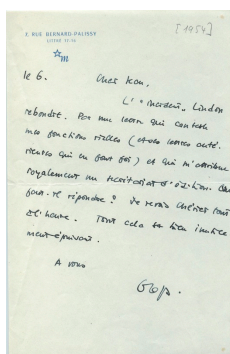 7, RUE BERNARD-PALISSY
[1954]
m
le 6.
Cher Jean,
L' "incident" Lindon
rebondit. Par une lettre qui conteste
mes fonctions réelles (et des lettres anté-
rieures qui en font foi) et qui m'attribue
royalement un secrétariat d'édition.
faut-il répondre? Je verrai
à l'heure. Tout cela est bien inutile
ment épuisant.
A vous